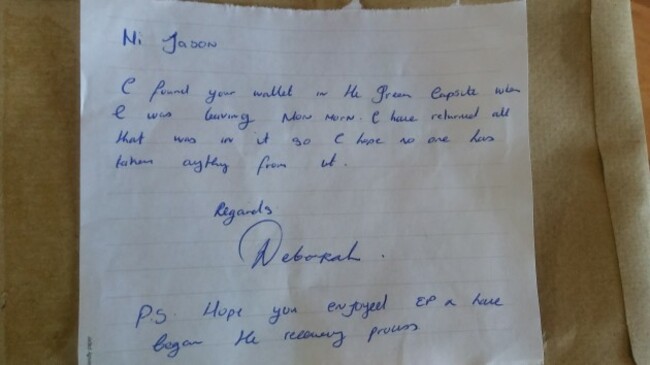 Hi Jason
I found your wallet in the Green Capsule when
I was leaving Mon morn. I have returned all
that was in it so I hope no one has
taken anything from it.
Regards
Deborah.
P.S. Hope you enjoyed EP & have
began the recovery process